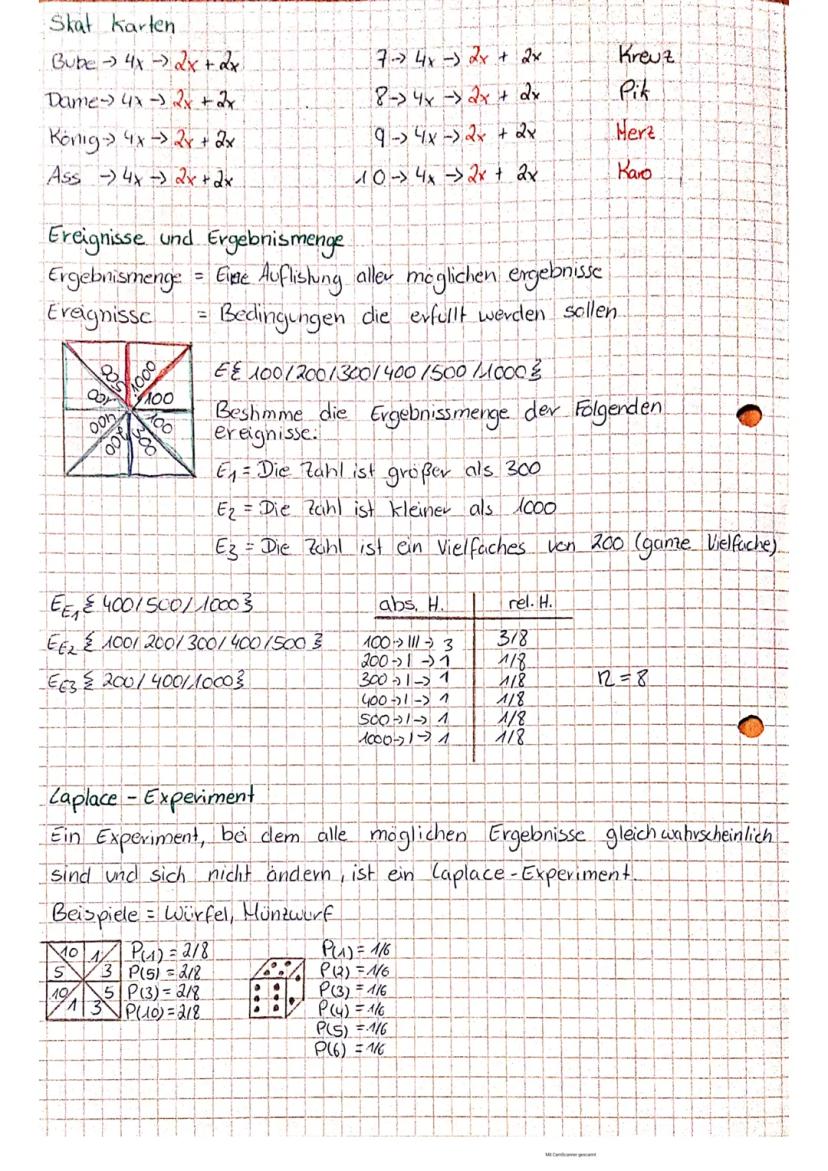 Skat Karten
Bube -> 4x -> 2x + 2x 7 -> 4x -> 2x + 2x Kreuz
Dame -> 4x -> 2x + 2x 8 -> 4x -> 2x + 2x Pik
König -> 4x -> 2x + 2x 9 -> 4x -> 2x + 2x Herz
Ass -> 4x -> 2x + 2x 10 -> 4x -> 2x + 2x Karo
Ereignisse und Ergebnismenge
Ergebnismenge = Eine Auflistung aller möglichen ergebnisse
Ereignisse = Bedingungen die erfüllt werden sollen
500 1000
100 100
400 100
200 300
E{ 100/200/300/400/500/1000}
Bestimme die Ergebnissmenge der Folgenden
ereignisse:
E1 = Die Zahl ist größer als 300
E2 = Die Zahl ist kleiner als 1000
E3 = Die Zahl ist ein Vielfaches von 200 (game Vielfache)
EE1{ 400/500/1000}
EE2{ 100/200/300/400/500}
EE3{ 200/400/1000}
abs. H. rel. H.
100 -> III -> 3 3/8
200 -> I -> 1 1/8
300 -> I -> 1 1/8
400 -> I -> 1 1/8
500 -> I -> 1 1/8
1000 -> I -> 1 1/8
n = 8
Laplace - Experiment
Ein Experiment, bei dem alle möglichen Ergebnisse gleichwahrscheinlich
sind und sich nicht ändern, ist ein Laplace-Experiment.
Beispiele = Würfel, Münzwurf
10 1
5 3
10 5
1 3
P(1) = 2/8
P(5) = 2/8
P(3) = 2/8
P(10) = 2/8
P(1) = 1/6
P(2) = 1/6
P(3) = 1/6
P(4) = 1/6
P(5) = 1/6
P(6) = 1/6
Mit CamScanner gescannt